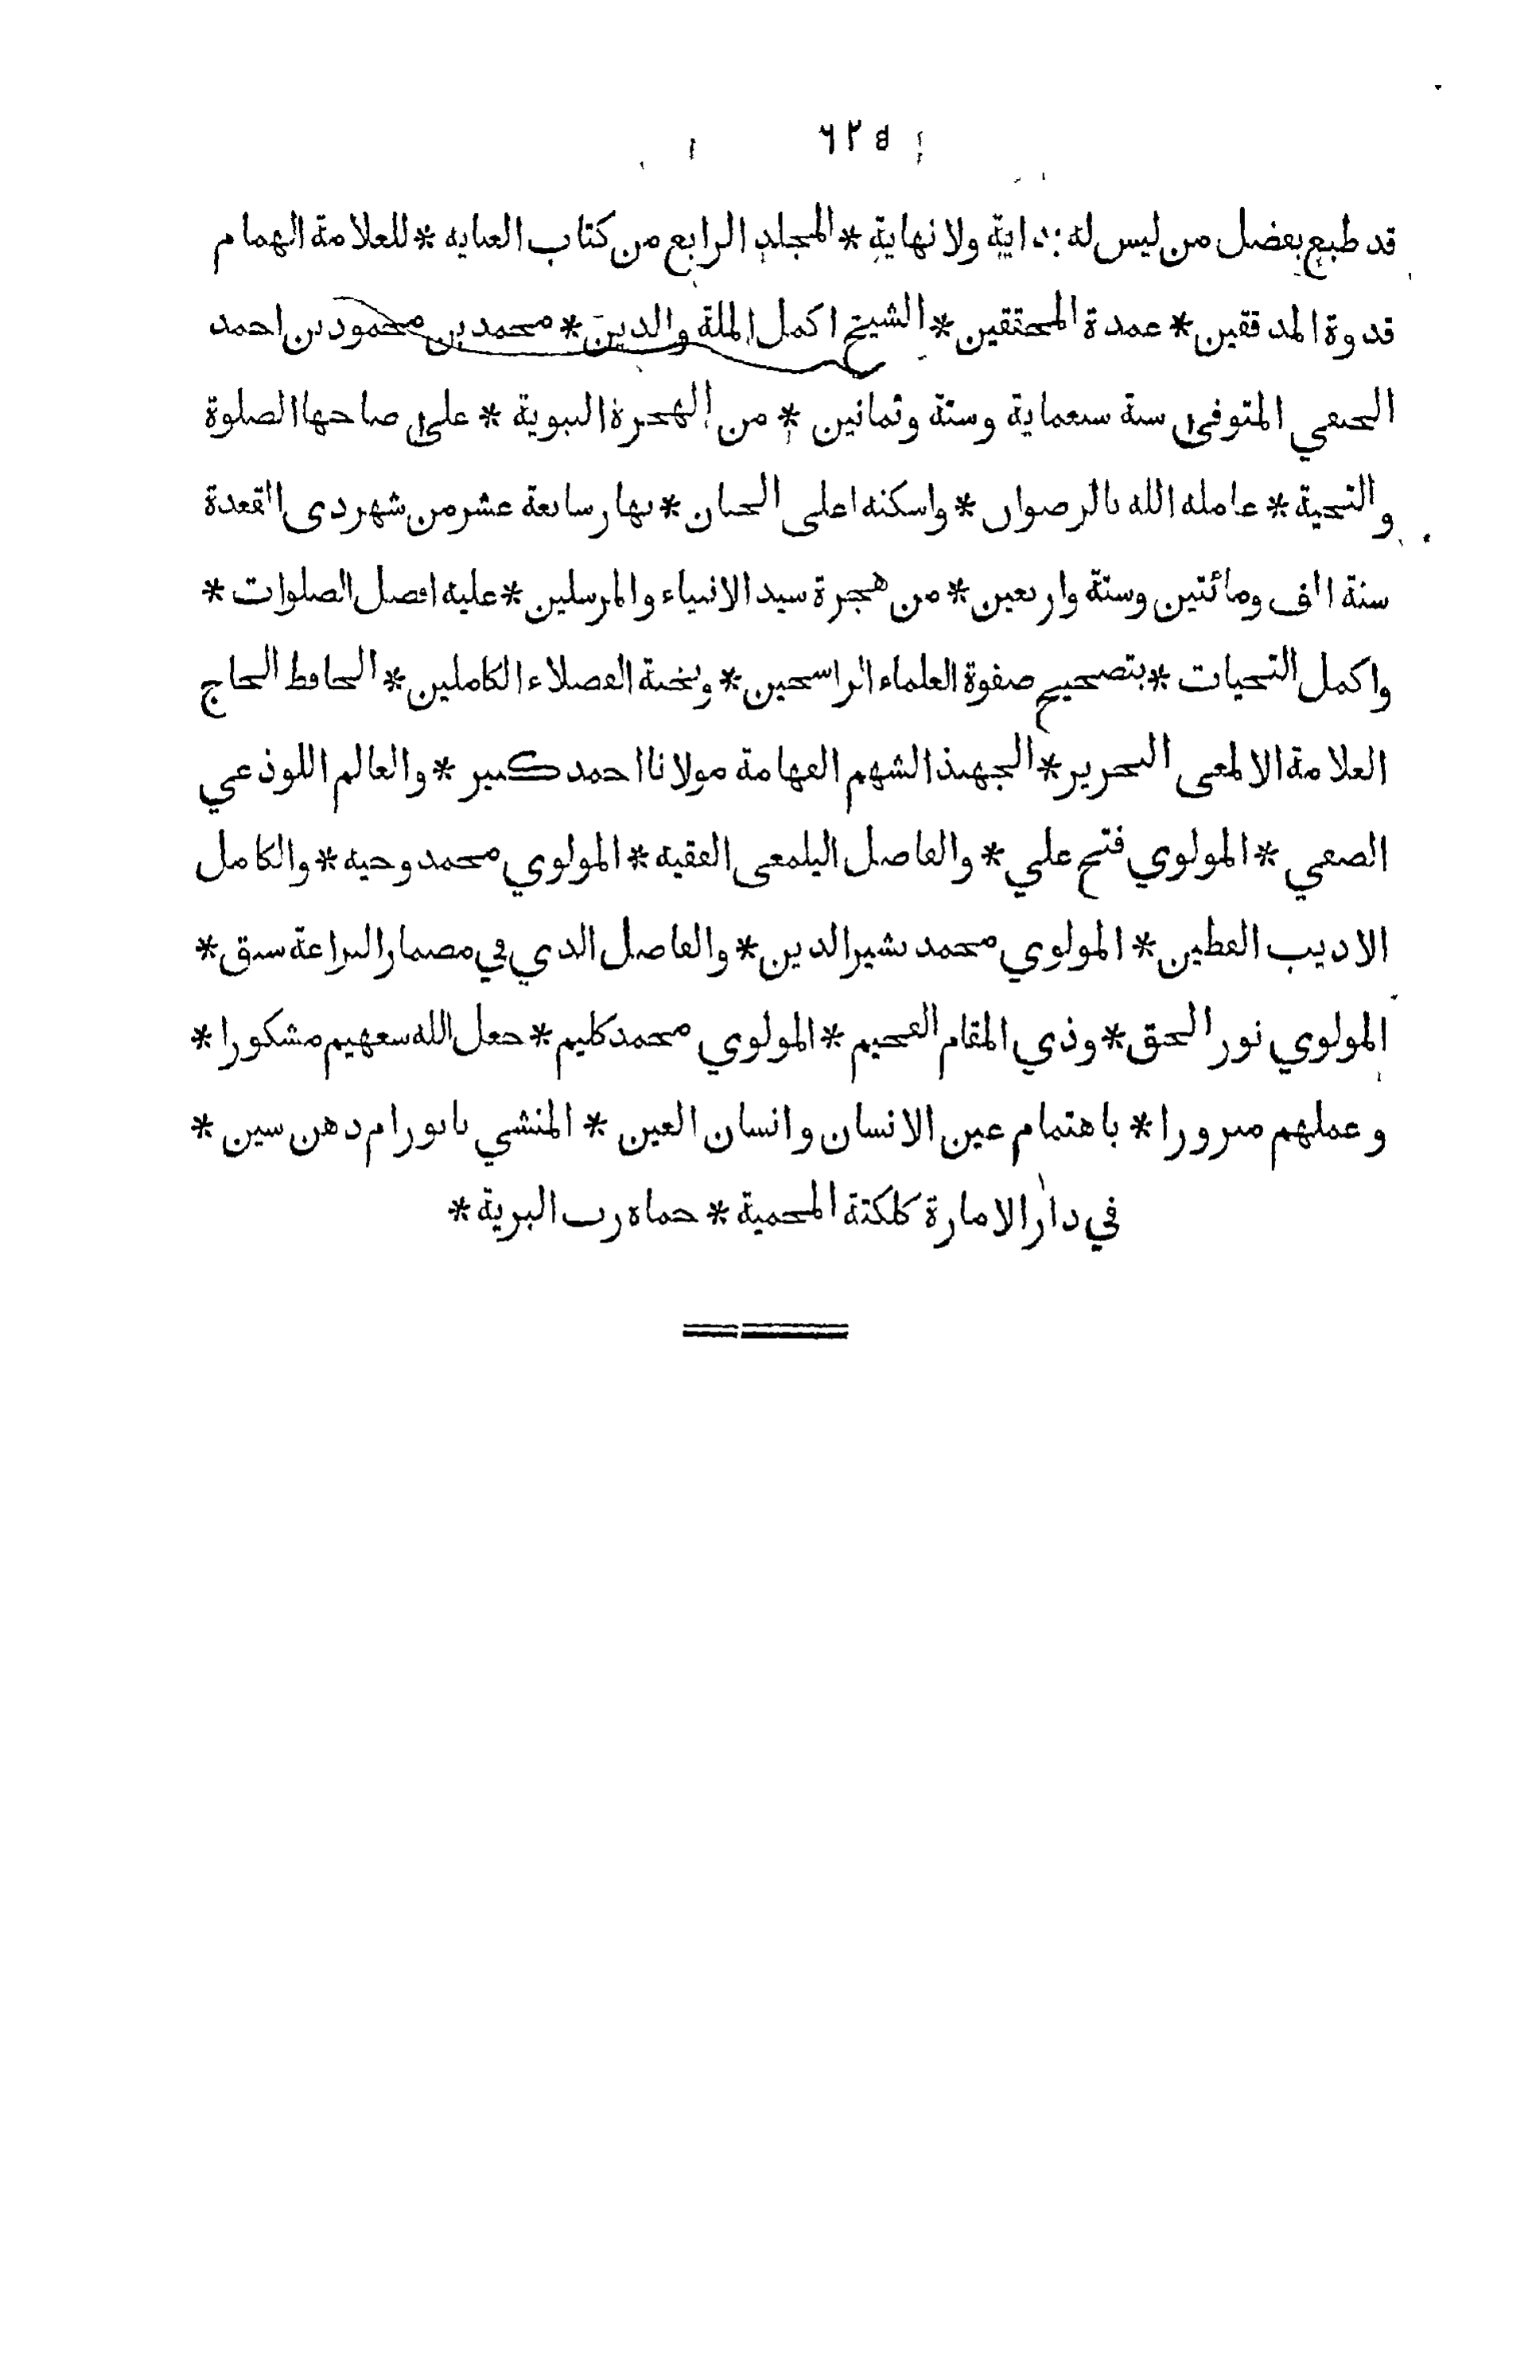 ٦٢٥
قد طبع بفضل من ليس له بداية ولا نهاية * المجلد الرابع من كتاب العنايه * للعلامة الهمام
قدوة المدققين * عمدة المحققين * الشيخ اكمل الملة والدين * محمد بن محمود بن احمد
الحنفي المتوفى سنة سبعماية وستة وثمانين * من الهجرة النبوية * على صاحبها الصلوة
والتحية * عامله الله بالرضوان * واسكنه اعلى الجنان * نهار سابعة عشر من شهر ذى القعدة
سنة الف ومائتين وستة واربعين * من هجرة سيد الانبياء والمرسلين * عليه افضل الصلوات *
واكمل التحيات * بتصحيح صفوة العلماء الراسخين * ونخبة الفضلاء الكاملين * الحافظ الحاج
العلامة الالمعى النحرير * الجهبذ الشهم الفهامة مولانا احمد كبير * والعالم اللوذعي
الصفي * المولوي فتح علي * والفاضل اليلمعى الفقيه * المولوي محمد وجيه * والكامل
الاديب الفطين * المولوي محمد بشير الدين * والفاضل الذي في مضمار البراعة سبق *
المولوي نور الحق * وذي المقام الفخيم * المولوي محمد كليم * جعل الله سعيهم مشكورا *
وعملهم مبرورا * باهتمام عين الانسان وانسان العين * المنشي بابو رام دهن سين *
في دار الامارة كلكتة المحمية * حماه رب البرية *